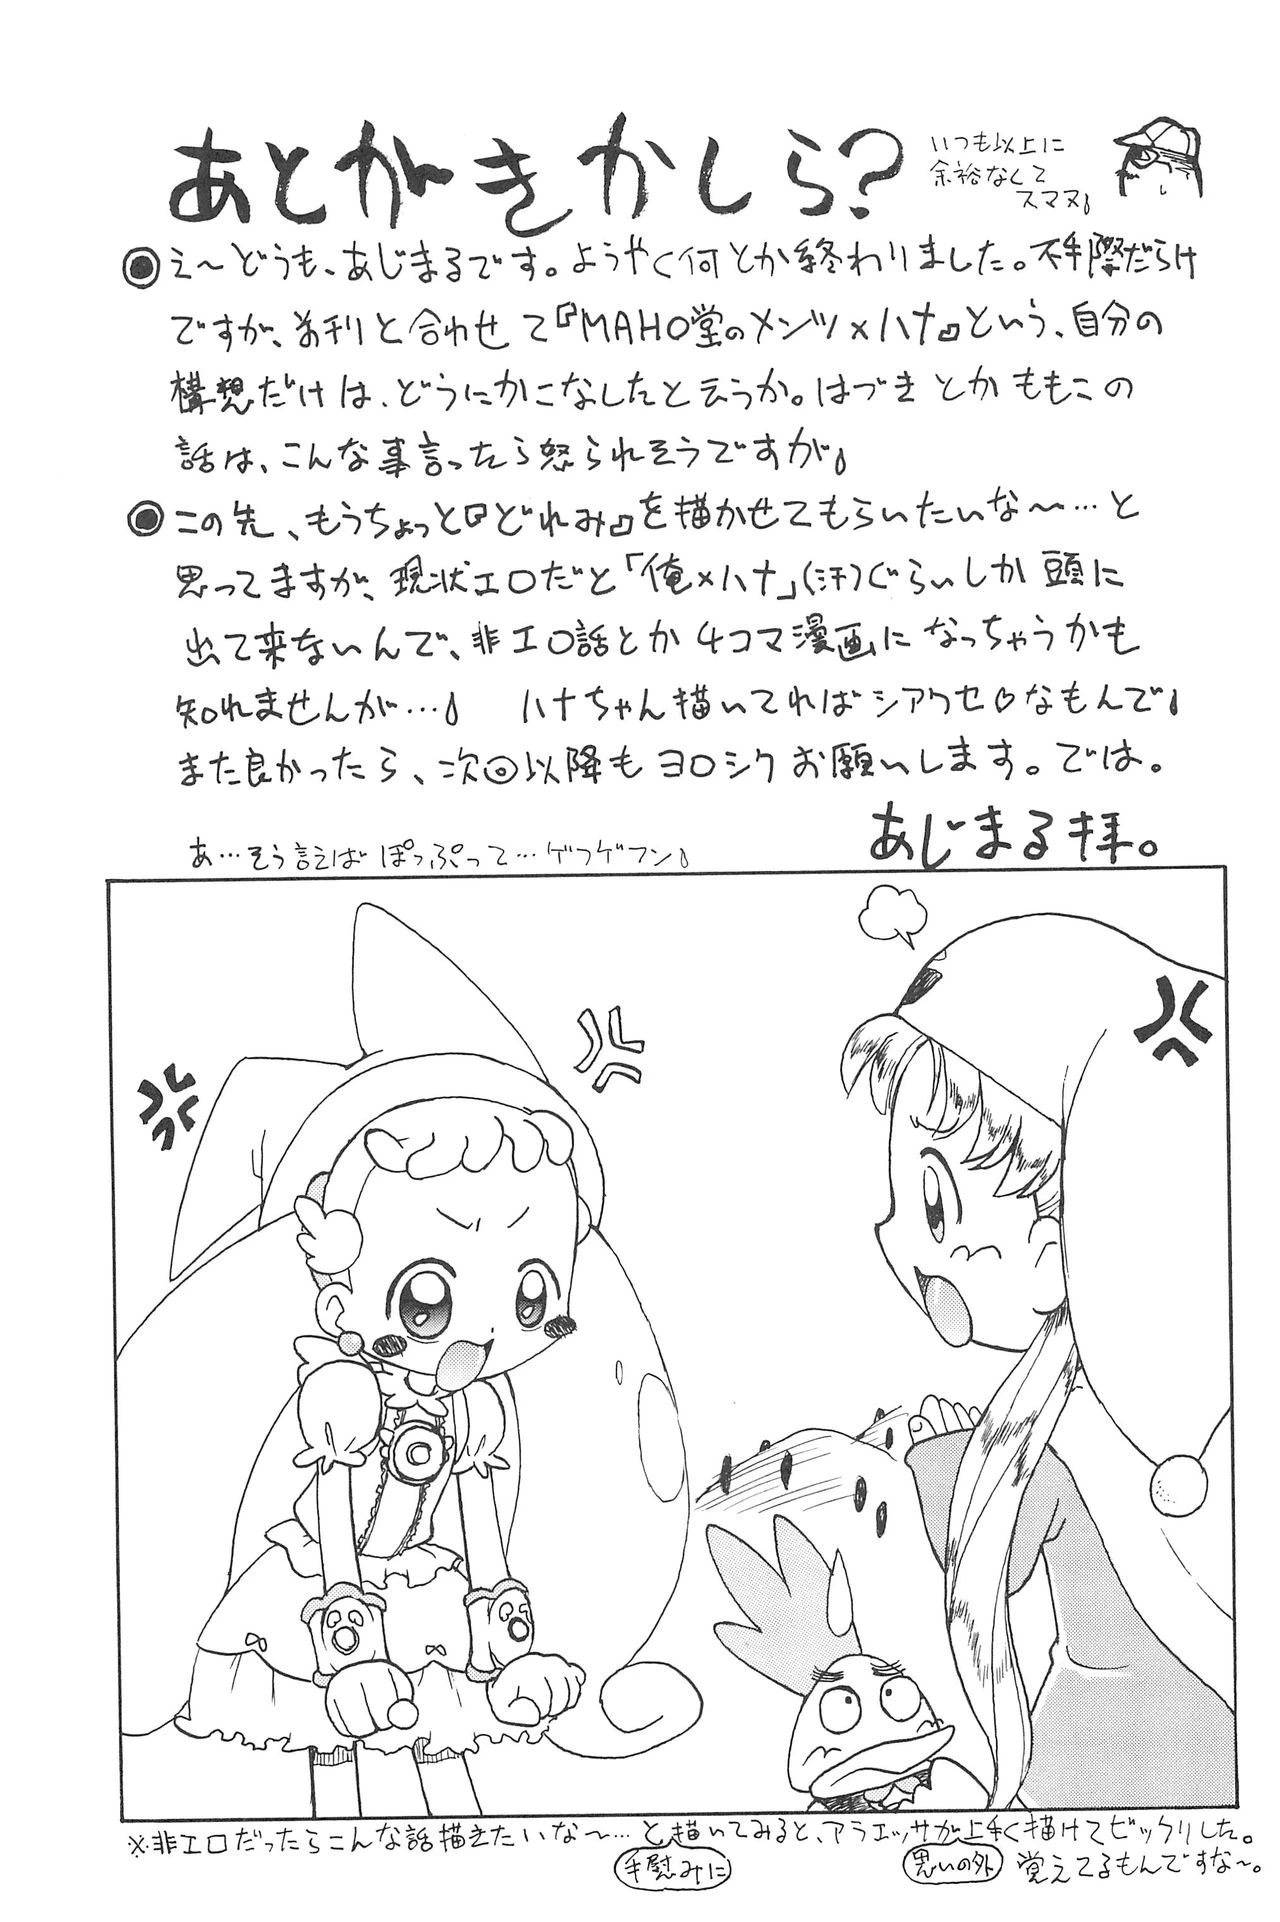 あとがきかしら?
いつも以上に
余裕なくて
スマヌ
◉え〜どうも、あじまるです。ようやく何とか終わりました。不手際だらけ
ですが、前刊と合わせて『MAHO堂のメンツ×ハナ』という、自分の
構想だけは、どうにかこなしたと云うか。はづきとかももこの
話は、こんな事言ったら怒られそうですが
◉この先、もうちょっと『どれみ』を描かせてもらいたいな〜…と
思ってますが、現状エロだと「俺×ハナ」(汗)ぐらいしか頭に
出て来ないんで、非エロ話とか4コマ漫画になっちゃうかも
知れませんが… ハナちゃん描いてればシアワセ♡なもんで
また良かったら、次回以降もヨロシクお願いします。では。
あじまる拝。
あ…そう言えばぽっぷって…ゲフゲフン
※非エロだったらこんな話描きたいな〜…と描いてみると、アラエッサが上手く描けてビックリした。
手慰みに
思いの外
覚えてるもんですな〜。